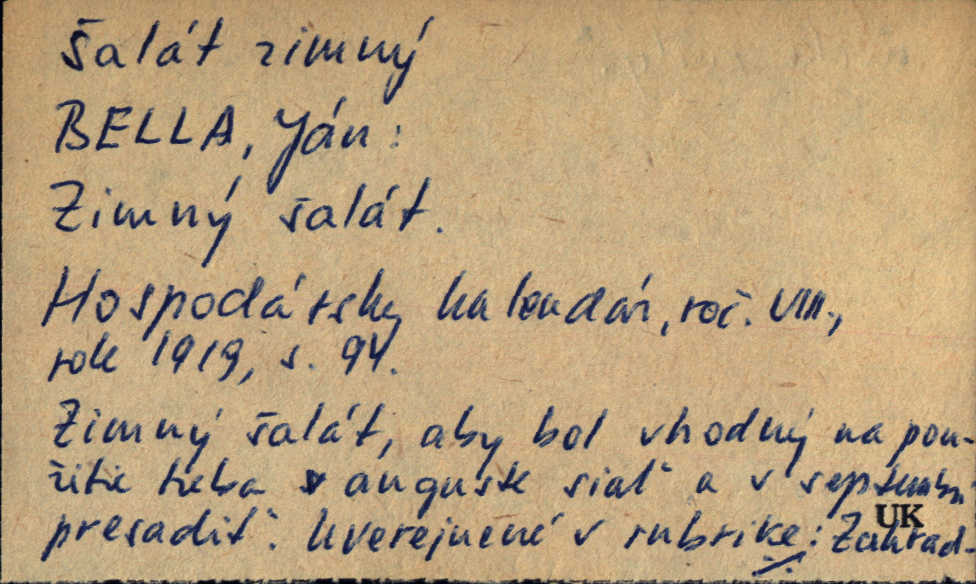 Šalát zimný
BELLA, Ján:
Zimný šalát.
Hospodársky kalendár, roč. VIII.,
rok 1919, s. 94.
Zimný šalát, aby bol vhodný na pou-
žitie treba v auguste siať a v septembri
presadiť. Uverejnené v rubrike: Záhrad-
UK